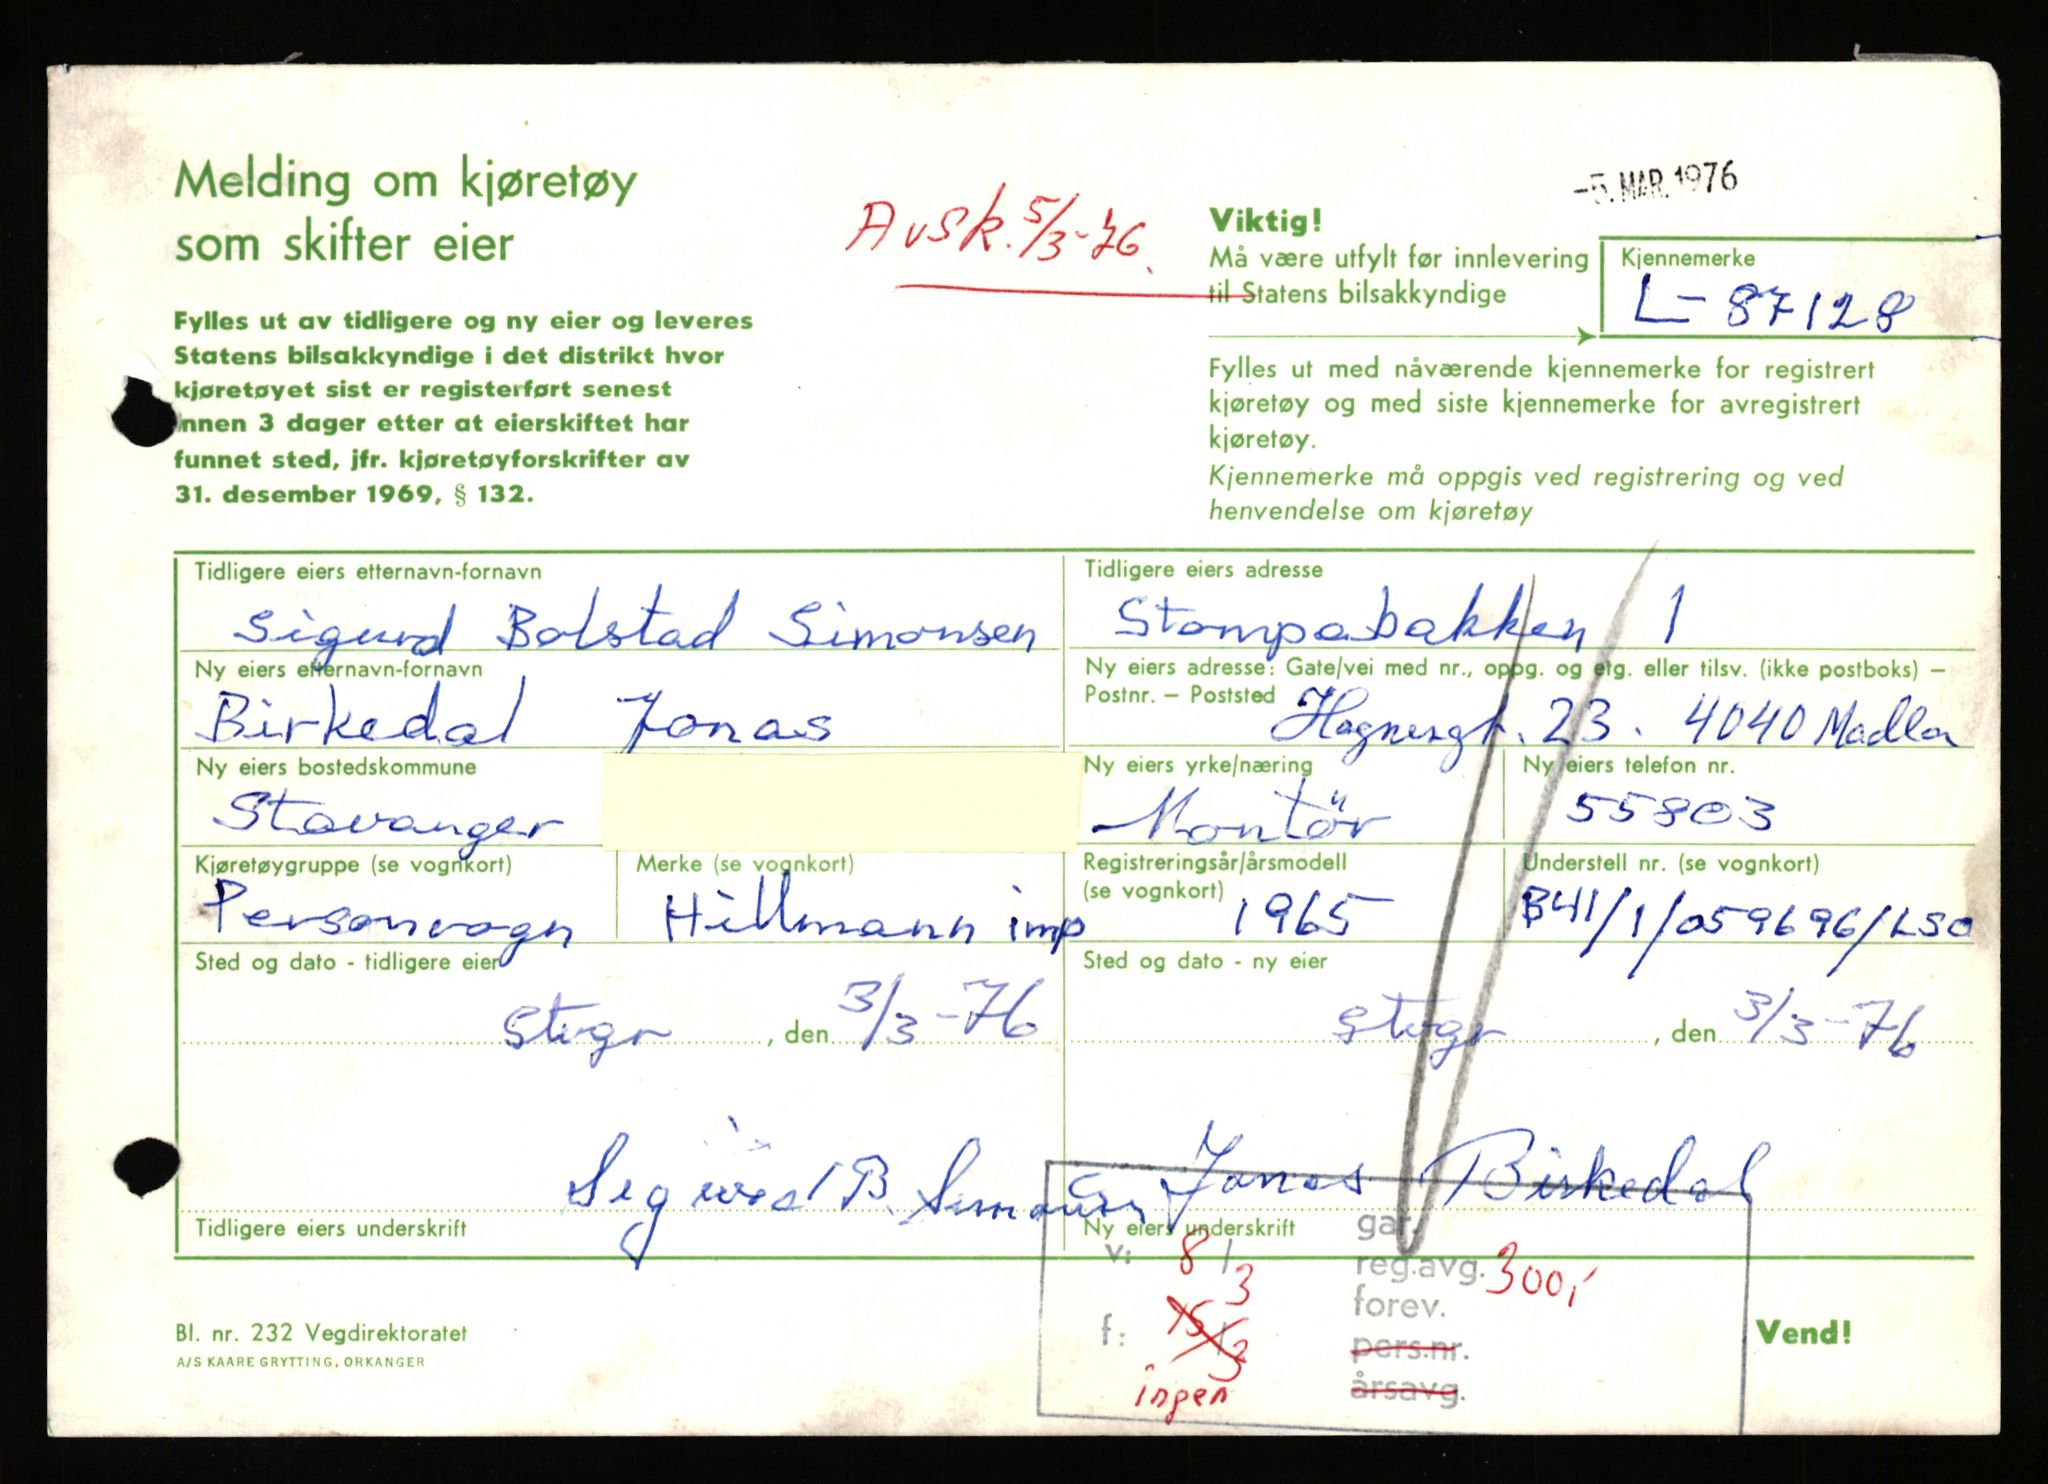 Melding om kjøretøy
som skifter eier
Avsk. 5/3-76.
-5. MAR. 1976
Viktig!
Må være utfylt før innlevering
til Statens bilsakkyndige
Kjennemerke
L-87128
Fylles ut av tidligere og ny eier og leveres
Statens bilsakkyndige i det distrikt hvor
kjøretøyet sist er registerført senest
innen 3 dager etter at eierskiftet har
funnet sted, jfr. kjøretøyforskrifter av
31. desember 1969, § 132.
Fylles ut med nåværende kjennemerke for registrert
kjøretøy og med siste kjennemerke for avregistrert
kjøretøy.
Kjennemerke må oppgis ved registrering og ved
henvendelse om kjøretøy
Tidligere eiers etternavn-fornavn
Sigurd Bolstad Simonsen
Tidligere eiers adresse
Stompabakken 1
Ny eiers etternavn-fornavn
Birkedal Jonas
Ny eiers adresse: Gate/vei med nr., oppg. og etg. eller tilsv. (ikke postboks) –
Postnr. – Poststed
23. 4040 Madla
Ny eiers bostedskommune
Stavanger
Ny eiers yrke/næring
Montör
Ny eiers telefon nr.
55803
Kjøretøygruppe (se vognkort)
Personvogn
Merke (se vognkort)
Hillmann imp
Registreringsår/årsmodell
(se vognkort)
1965
Understell nr. (se vognkort)
B41/1/059696/LSO
Sted og dato - tidligere eier
Stvgr , den 3/3-76
Sted og dato - ny eier
Stvgr , den 3/3-76
Sigurd B. Simonsen
Jonas Birkedal
Tidligere eiers underskrift
Ny eiers underskrift
gar.
v: 8/3
reg.avg. 300,-
forev.
f: 15/3
pers.nr.
ingen
årsavg.
Bl. nr. 232 Vegdirektoratet
A/S KAARE GRYTTING, ORKANGER
Vend!